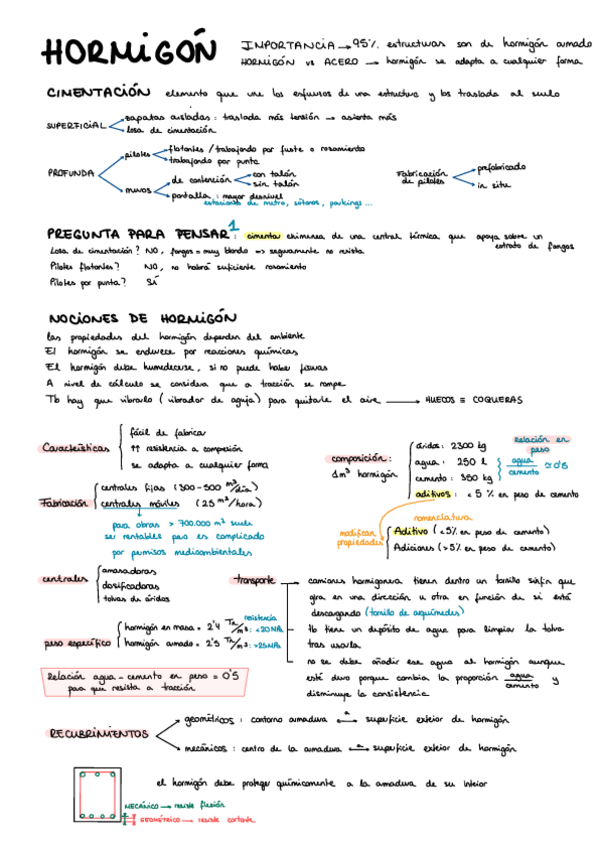 HORMIGÓN
IMPORTANCIA → 95% estructuras son de hormigón armado
HORMIGÓN vs ACERO → hormigón se adapta a cualquier forma
CIMENTACIÓN elemento que une los esfuerzos de una estructura y los traslada al suelo
SUPERFICIAL
zapatas aisladas: traslada más tensión → asienta más
losa de cimentación
PROFUNDA
pilotes
flotantes / trabajando por fuste o rozamiento
trabajando por punta
muros
de contención
con talón
sin talón
pantalla: mayor desnivel
estaciones de metro, sótanos, parkings ...
Fabricación de pilotes
prefabricado
in situ
PREGUNTA PARA PENSAR 1: cimentar chimenea de una central térmica que apoya sobre un estrato de fangos
Losa de cimentación? NO, fangos = muy blando => seguramente no resista
Pilotes flotantes? NO, no habrá suficiente rozamiento
Pilotes por punta? SÍ
NOCIONES DE HORMIGÓN
las propiedades del hormigón dependen del ambiente
El hormigón se endurece por reacciones químicas
El hormigón debe humedecerse, si no puede haber fisuras
A nivel de cálculo se considera que a tracción se rompe
Tb hay que vibrarlo (vibrador de aguja) para quitarle el aire → HUECOS ≡ COQUERAS
Características
fácil de fabricar
↑↑ resistencia a compresión
se adapta a cualquier forma
composición:
1m³ hormigón
áridos: 2300 kg
agua: 250 l
cemento: 350 kg
aditivos: < 5 % en peso de cemento
relación en peso
agua/cemento ≃ 0'5
Fabricación
centrales fijas (300-500 m³/día)
centrales móviles (25 m³/hora)
para obras > 700.000 m³ suele
ser rentable pero es complicado
por permisos medioambientales
modifican propiedades
nomenclatura
Aditivo (<5% en peso de cemento)
Adiciones (>5% en peso de cemento)
centrales
amasadoras
dosificadoras
tolvas de áridos
transporte
camiones hormigonera tienen dentro un tornillo sinfín que
gira en una dirección u otra en función de si está
descargando (tornillo de arquímedes)
tb tiene un depósito de agua para limpiar la tolva
tras usarla
no se debe añadir ese agua al hormigón aunque
esté duro porque cambia la proporción agua/cemento y
disminuye la consistencia
peso específico
resistencia
hormigón en masa = 2'4 Tn/m³:
hormigón armado = 2'5 Tn/m³:
Relación agua-cemento en peso = 0'5
para que resista a tracción
RECUBRIMIENTOS
geométricos: contorno armadura ↔ superficie exterior de hormigón
mecánicos: centro de la armadura ↔ superficie exterior de hormigón
el hormigón debe proteger químicamente a la armadura de su interior
MECÁNICO → resiste flexión
GEOMÉTRICO → resiste cortante